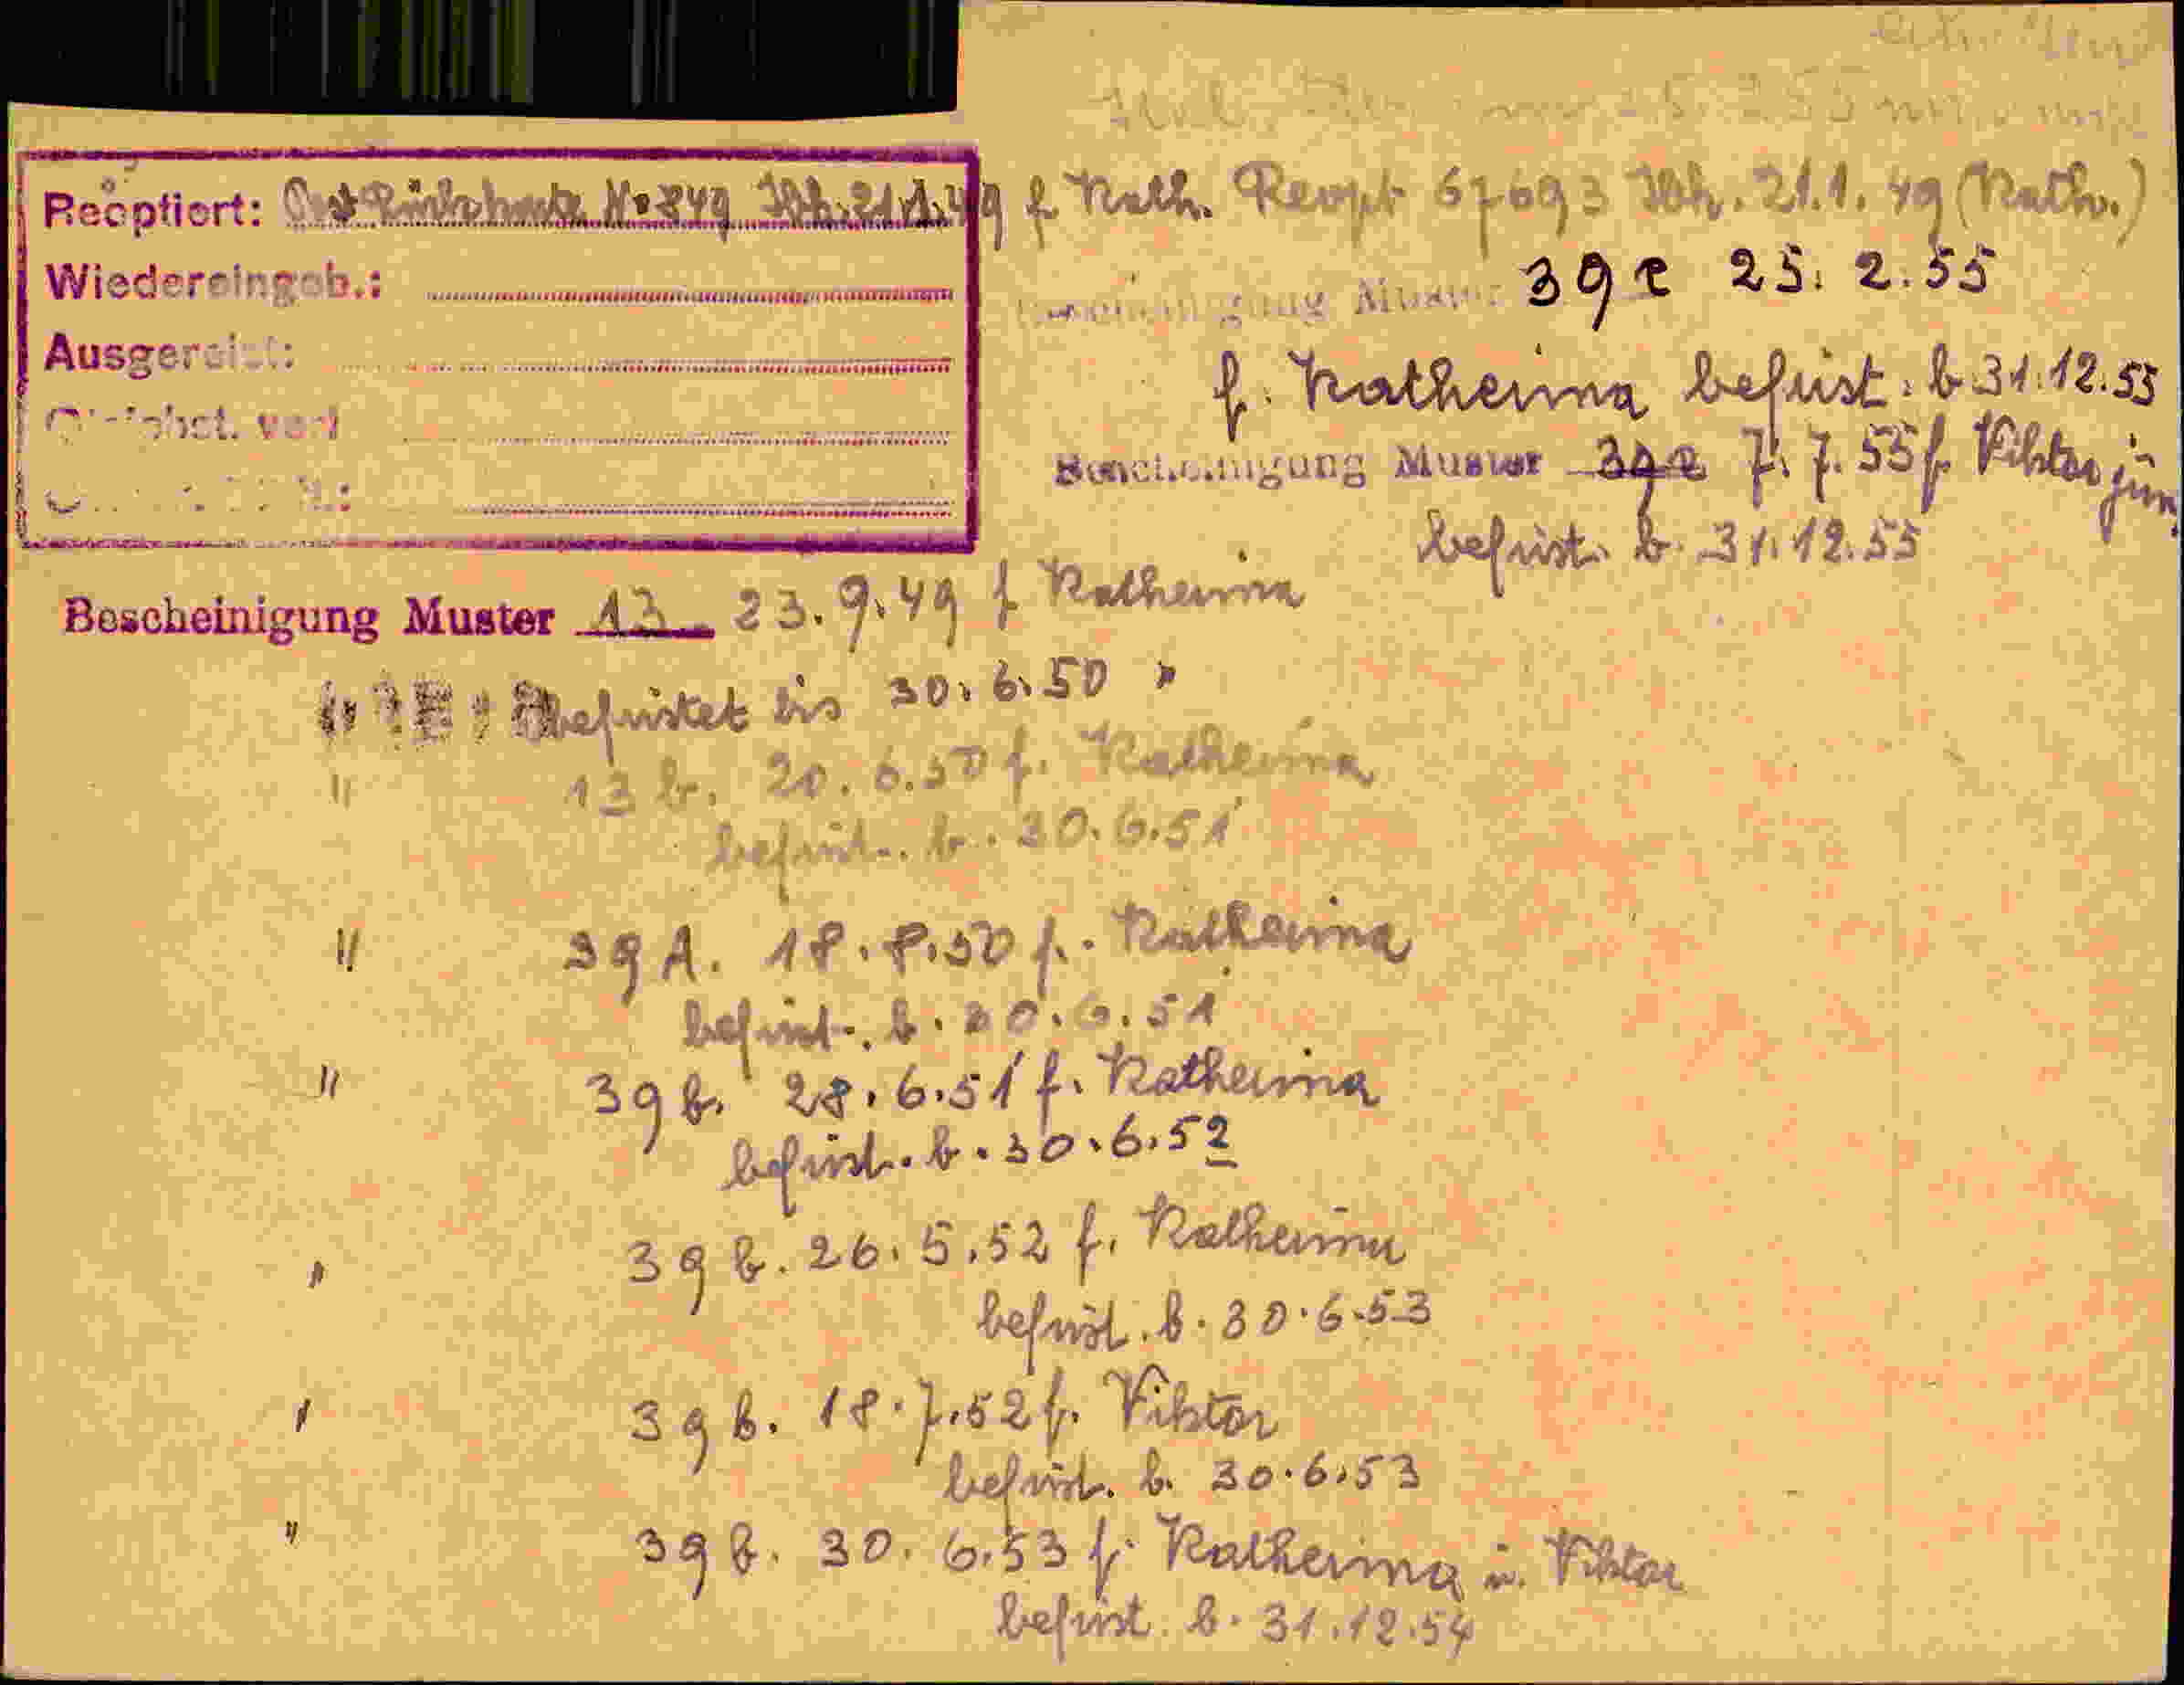 Reoptiert: No 849 Ibh. 21.1.49 f. Kath. Reopt 67693 Ibh. 21.1.49 (Kath.)
Wiedereingeb.:
Ausgereist:
Muster 39 e 25. 2. 55
f. Katherina befrist. b. 31.12.55
Bescheinigung Muster 39 e 7. 7. 55 f. Viktor jun.
befrist. b. 31.12.55
Bescheinigung Muster 13 23. 9. 49 f Katherina
befristet bis 30. 6. 50 "
" 13 b. 20. 6. 50 f. Katherina
befrist. b. 30. 6. 51
" 39 A. 18. 8. 50 f. Katherina
befrist. b. 30. 6. 51
" 39 b. 28. 6. 51 f. Katherina
befrist. b. 30. 6. 52
" 39 b. 26. 5. 52 f. Katherina
befrist. b. 30. 6. 53
" 39 b. 18. 7. 52 f. Viktor
befrist. b. 30. 6. 53
" 39 b. 30. 6. 53 f. Katherina u. Viktor
befrist. b. 31. 12. 54